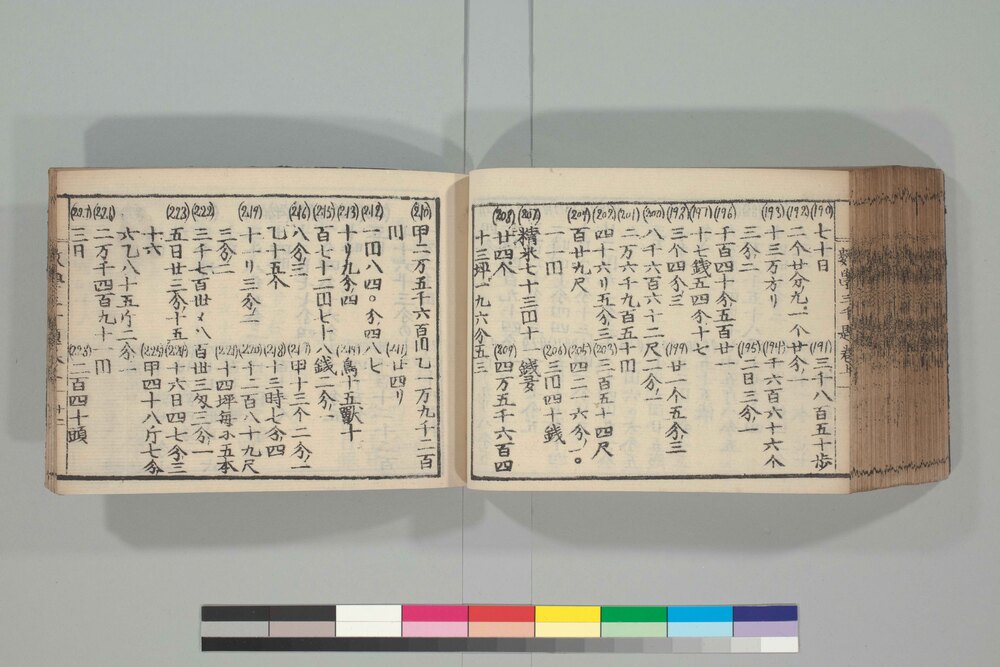 (190) 七十日 (191) 三千八百五十歩
(192) 二个廿分九、一个廿分一
(193) 十三万方リ (194) 千六百六十六个
三分二 (195) 一日三分一
(196) 千百四十分五百廿一
(197) 十七銭五四分十七
(198) 三个四分三 (199) 廿一个五分三
(200) 八千六百六十二尺二分一
(201) 二万六千九百五十円
(202) 四十六リ五分三 (203) 三百五十四尺
(204) 百廿九尺 (205) 四二一六分一。
一一円 (206) 三円四十銭
(207) 精米七十三円十一銭
(208) 廿四个 (209) 四万五千六百四
十三坪一九六分五三
(210) 甲二万五千六百円乙一万九千二百
円 (211) 廿四リ
(212) 一円八四。分四八七
(213) 十リ九分四 (214) 鳥十五獣十
(215) 百七十二円七十八銭二分一
(216) 八分三 (217) 甲十三个二分一
乙十五个 (218) 十三時七分四
(219) 十一リ三分一 (220) 千二百八十九尺
三分二 (221) 十四坪毎小五本
(222) 三千七百世〆八百世三匁三分一
(223) 五日廿三分十五 (224) 十六日四七分三
十六 (225) 甲四十八斤七分
六乙八十五斤二分一
(226) 二万千四百九十二円
(227) 三日 (228) 二百四十頭